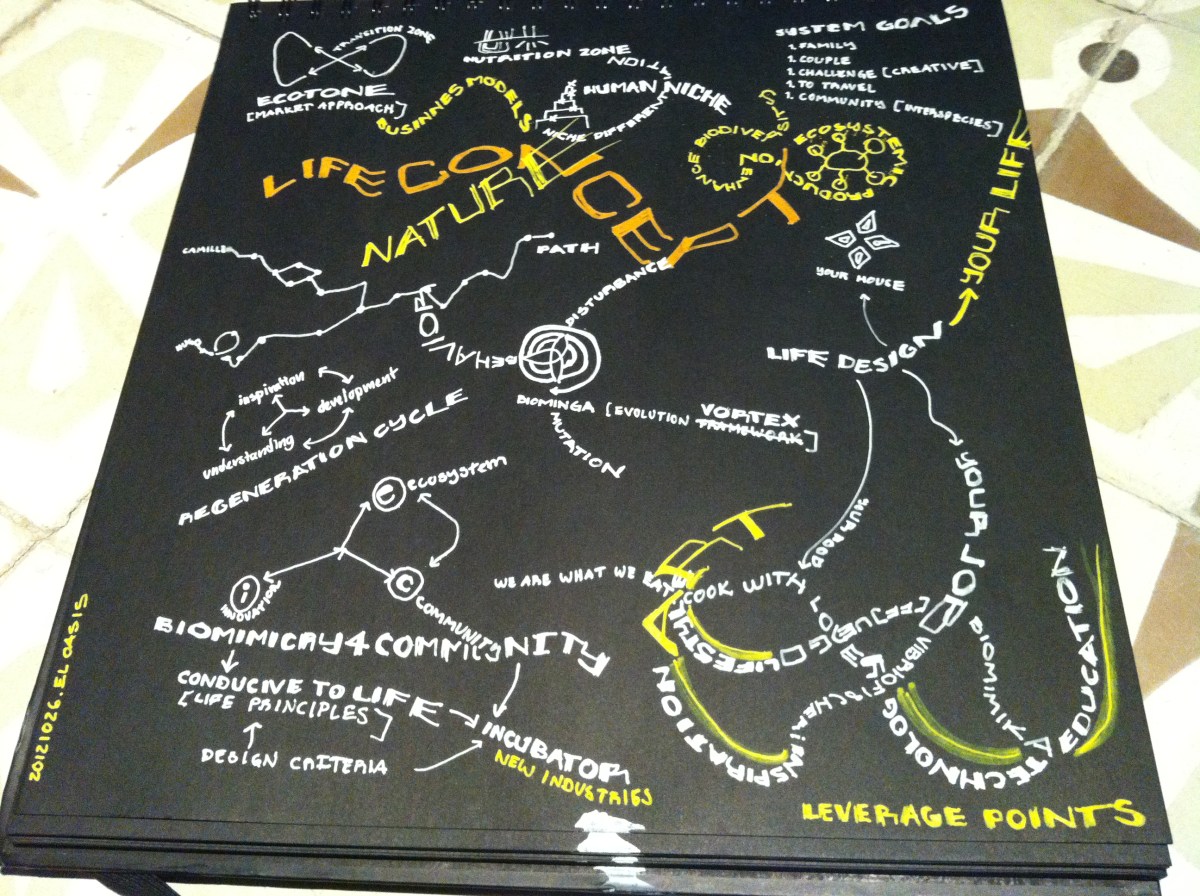 TRANSITION ZONE
ECOTONE
[MARKET APPROACH]
NUTRITION ZONE
HUMAN NICHE
NICHE DIFFERENTIATION
SYSTEM GOALS
1. FAMILY
1. COUPLE
1. CHALLENGE [CREATIVE]
1. TO TRAVEL
1. COMMUNITY [INTERSPECIES]
BUSINNES MODELS
LIFE CONCEPT
NATURE
ENHANCE BIODIVERSITY
NO.
ECOSYSTEMIC PRODUCT
YOUR HOUSE
YOUR LIFE
LIFE DESIGN
CAMILLE
PATH
BEHAVIOR
DISTURBANCE
BIOMINGA [EVOLUTION VORTEX
FRAMEWORK]
MUTATION
inspiration
development
understanding
REGENERATION CYCLE
e ecosystem
i INNOVATION
c COMMUNITY
BIOMIMICRY 4 COMMUNITY
CONDUCIVE TO LIFE
[LIFE PRINCIPLES]
DESIGN CRITERIA
INCUBATOR
NEW INDUSTRIES
YOUR FOOD
YOUR JOB
WE ARE WHAT WE EAT
COOK WITH
ART
LIFESTYLE
INSPIRATION
TECHNOLOGY
EDUCATION
LEVERAGE POINTS
20121026. EL OASIS